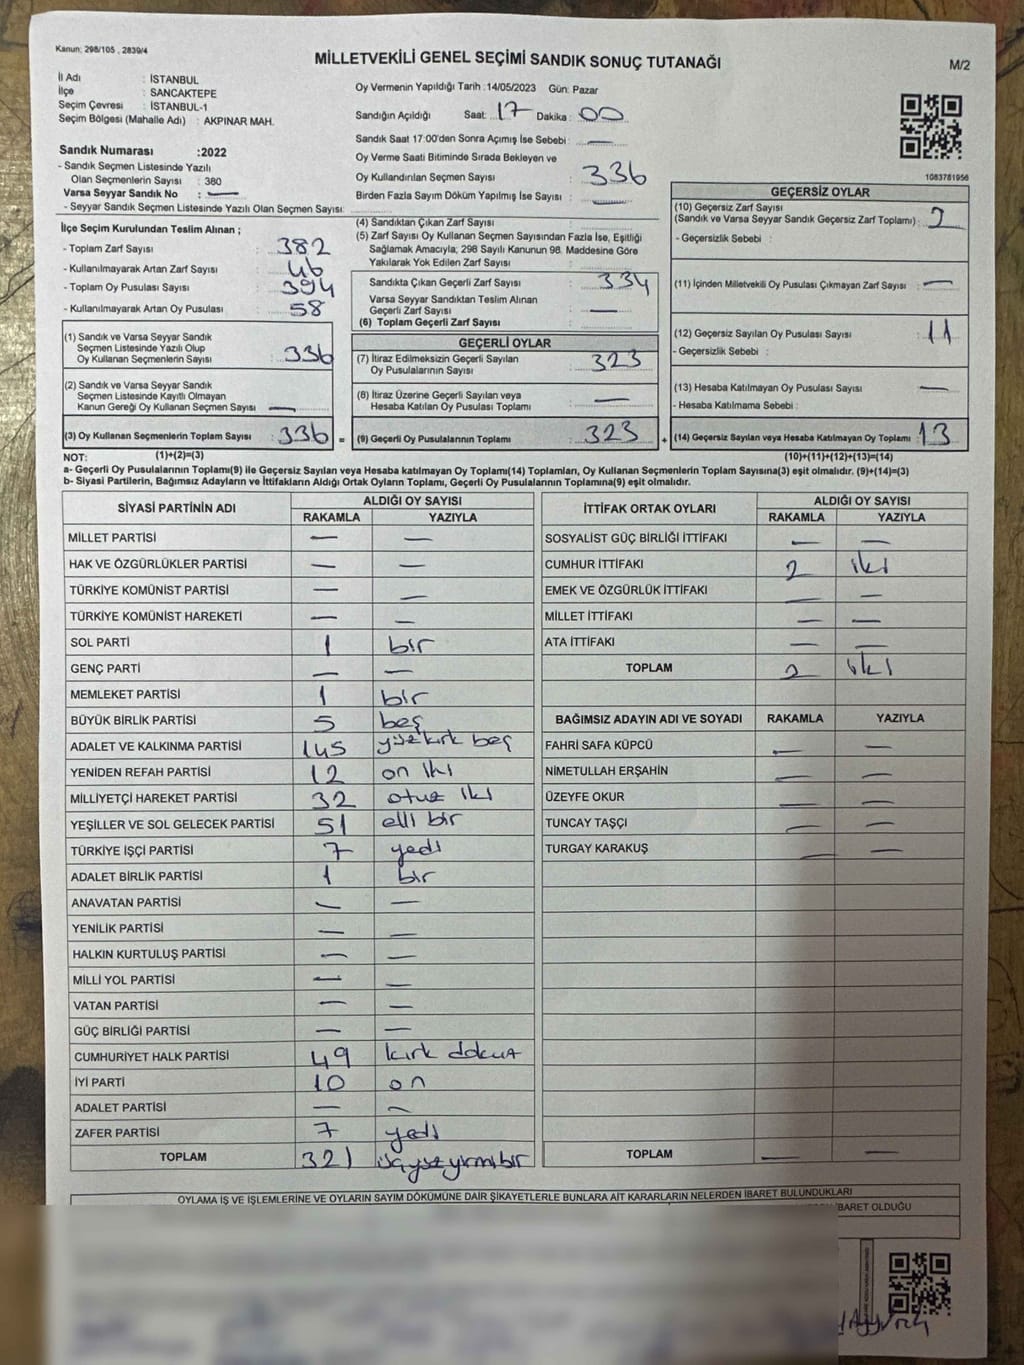 Kanun: 298/105 , 2839/4
MİLLETVEKİLİ GENEL SEÇİMİ SANDIK SONUÇ TUTANAĞI
M/2
İl Adı : İSTANBUL
İlçe : SANCAKTEPE
Seçim Çevresi : İSTANBUL-1
Seçim Bölgesi (Mahalle Adı) : AKPINAR MAH.
Sandık Numarası :2022
- Sandık Seçmen Listesinde Yazılı
Olan Seçmenlerin Sayısı : 380
Varsa Seyyar Sandık No : —
- Seyyar Sandık Seçmen Listesinde Yazılı Olan Seçmen Sayısı:
Oy Vermenin Yapıldığı Tarih :14/05/2023 Gün: Pazar
Sandığın Açıldığı Saat: 17 Dakika : 00
Sandık Saat 17:00'den Sonra Açımış İse Sebebi : —
Oy Verme Saati Bitiminde Sırada Bekleyen ve
Oy Kullandırılan Seçmen Sayısı : 336
Birden Fazla Sayım Döküm Yapılmış İse Sayısı : —
1083781956
İlçe Seçim Kurulundan Teslim Alınan ;
- Toplam Zarf Sayısı : 382
- Kullanılmayarak Artan Zarf Sayısı : 46
- Toplam Oy Pusulası Sayısı : 394
- Kullanılmayarak Artan Oy Pusulası : 58
(1) Sandık ve Varsa Seyyar Sandık
Seçmen Listesinde Yazılı Olup
Oy Kullanan Seçmenlerin Sayısı : 336
(2) Sandık ve Varsa Seyyar Sandık
Seçmen Listesinde Kayıtlı Olmayan
Kanun Gereği Oy Kullanan Seçmen Sayısı : —
(3) Oy Kullanan Seçmenlerin Toplam Sayısı : 336 =
(4) Sandıktan Çıkan Zarf Sayısı :
(5) Zarf Sayısı Oy Kullanan Seçmen Sayısından Fazla İse, Eşitliği
Sağlamak Amacıyla; 298 Sayılı Kanunun 98. Maddesine Göre
Yakılarak Yok Edilen Zarf Sayısı :
Sandıkta Çıkan Geçerli Zarf Sayısı : 334
Varsa Seyyar Sandıktan Teslim Alınan
Geçerli Zarf Sayısı : —
(6) Toplam Geçerli Zarf Sayısı :
GEÇERLİ OYLAR
(7) İtiraz Edilmeksizin Geçerli Sayılan
Oy Pusulalarının Sayısı : 323
(8) İtiraz Üzerine Geçerli Sayılan veya
Hesaba Katılan Oy Pusulası Toplamı : —
(9) Geçerli Oy Pusulalarının Toplamı : 323 +
GEÇERSİZ OYLAR
(10) Geçersiz Zarf Sayısı
(Sandık ve Varsa Seyyar Sandık Geçersiz Zarf Toplamı) : 2
- Geçersizlik Sebebi :
(11) İçinden Milletvekili Oy Pusulası Çıkmayan Zarf Sayısı : —
(12) Geçersiz Sayılan Oy Pusulası Sayısı : 11
- Geçersizlik Sebebi :
(13) Hesaba Katılmayan Oy Pusulası Sayısı : —
- Hesaba Katılmama Sebebi :
(14) Geçersiz Sayılan veya Hesaba Katılmayan Oy Toplamı : 13
NOT: (1)+(2)=(3) (10)+(11)+(12)+(13)=(14)
a- Geçerli Oy Pusulalarının Toplamı(9) ile Geçersiz Sayılan veya Hesaba katılmayan Oy Toplamı(14) Toplamları, Oy Kullanan Seçmenlerin Toplam Sayısına(3) eşit olmalıdır. (9)+(14)=(3)
b- Siyasi Partilerin, Bağımsız Adayların ve İttifakların Aldığı Ortak Oyların Toplamı, Geçerli Oy Pusulalarının Toplamına(9) eşit olmalıdır.
SİYASİ PARTİNİN ADI ALDIĞI OY SAYISI
RAKAMLA YAZIYLA
MİLLET PARTİSİ — —
HAK VE ÖZGÜRLÜKLER PARTİSİ — —
TÜRKİYE KOMÜNİST PARTİSİ — —
TÜRKİYE KOMÜNİST HAREKETİ — —
SOL PARTİ 1 bir
GENÇ PARTİ — —
MEMLEKET PARTİSİ 1 bir
BÜYÜK BİRLİK PARTİSİ 5 beş
ADALET VE KALKINMA PARTİSİ 145 yüzkırk beş
YENİDEN REFAH PARTİSİ 12 on iki
MİLLİYETÇİ HAREKET PARTİSİ 32 otuz iki
YEŞİLLER VE SOL GELECEK PARTİSİ 51 elli bir
TÜRKİYE İŞÇİ PARTİSİ 7 yedi
ADALET BİRLİK PARTİSİ 1 bir
ANAVATAN PARTİSİ — —
YENİLİK PARTİSİ — —
HALKIN KURTULUŞ PARTİSİ — —
MİLLİ YOL PARTİSİ — —
VATAN PARTİSİ — —
GÜÇ BİRLİĞİ PARTİSİ — —
CUMHURİYET HALK PARTİSİ 49 kırk dokuz
İYİ PARTİ 10 on
ADALET PARTİSİ — —
ZAFER PARTİSİ 7 yedi
TOPLAM 321 üçyüzyirmibir
İTTİFAK ORTAK OYLARI ALDIĞI OY SAYISI
RAKAMLA YAZIYLA
SOSYALİST GÜÇ BİRLİĞİ İTTİFAKI — —
CUMHUR İTTİFAKI 2 iki
EMEK VE ÖZGÜRLÜK İTTİFAKI — —
MİLLET İTTİFAKI — —
ATA İTTİFAKI — —
TOPLAM 2 iki
BAĞIMSIZ ADAYIN ADI VE SOYADI RAKAMLA YAZIYLA
FAHRİ SAFA KÜPCÜ — —
NİMETULLAH ERŞAHİN — —
ÜZEYFE OKUR — —
TUNCAY TAŞÇI — —
TURGAY KARAKUŞ — —
TOPLAM — —
OYLAMA İŞ VE İŞLEMLERİNE VE OYLARIN SAYIM DÖKÜMÜNE DAİR ŞİKAYETLERLE BUNLARA AİT KARARLARIN NELERDEN İBARET BULUNDUKLARI
İBARET OLDUĞU